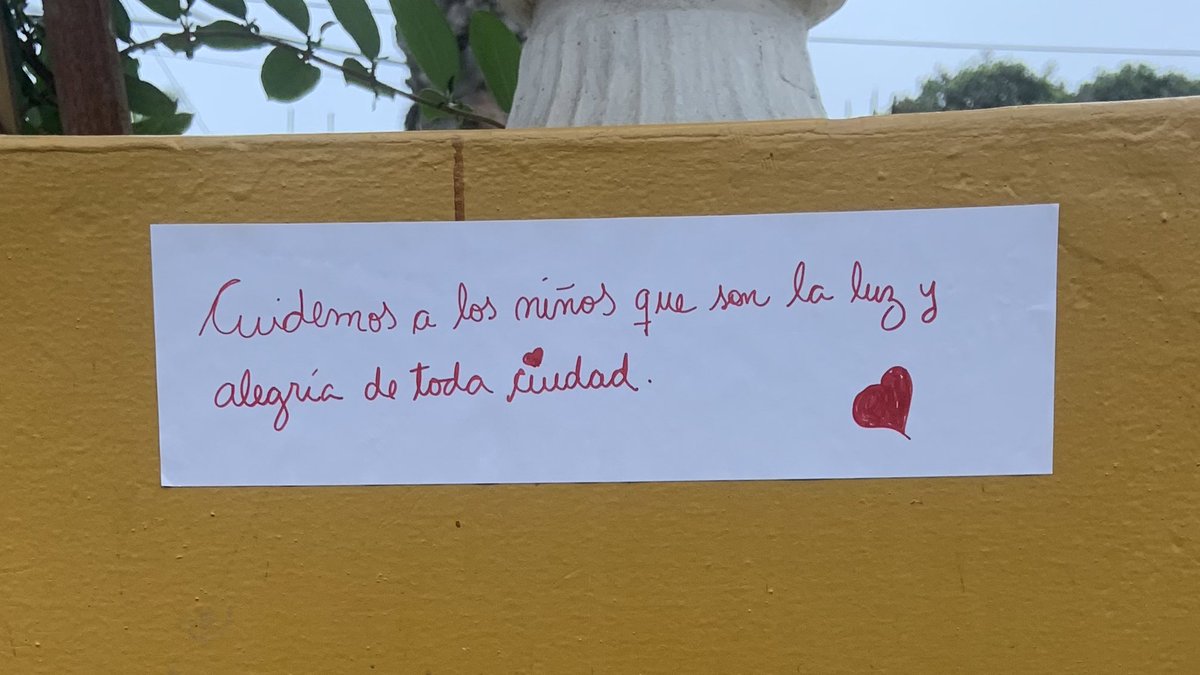 Cuidemos a los niños que son la luz y
alegría de toda ciudad.